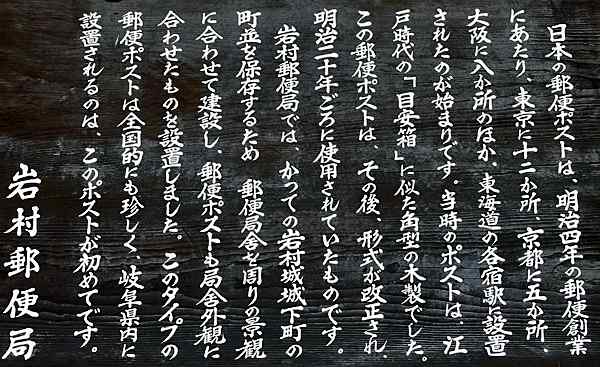 日本の郵便ポストは、明治四年の郵便創業
にあたり、東京に十二か所、京都に五か所、
大阪に八か所のほか、東海道の各宿駅に設置
されたのが始まりです。当時のポストは、江
戸時代の「目安箱」に似た角型の木製でした。
この郵便ポストは、その後、形式が改正され、
明治二十年ごろに使用されていたものです。
岩村郵便局では、かつての岩村城城下町の
町並を保存するため 郵便局舎を周りの景観
に合わせて建設し、郵便ポストも局舎外観に
合わせたものを設置しました。このタイプの
郵便ポストは全国的にも珍しく、岐阜県内に
設置されるのは、このポストが初めてです。
岩村郵便局